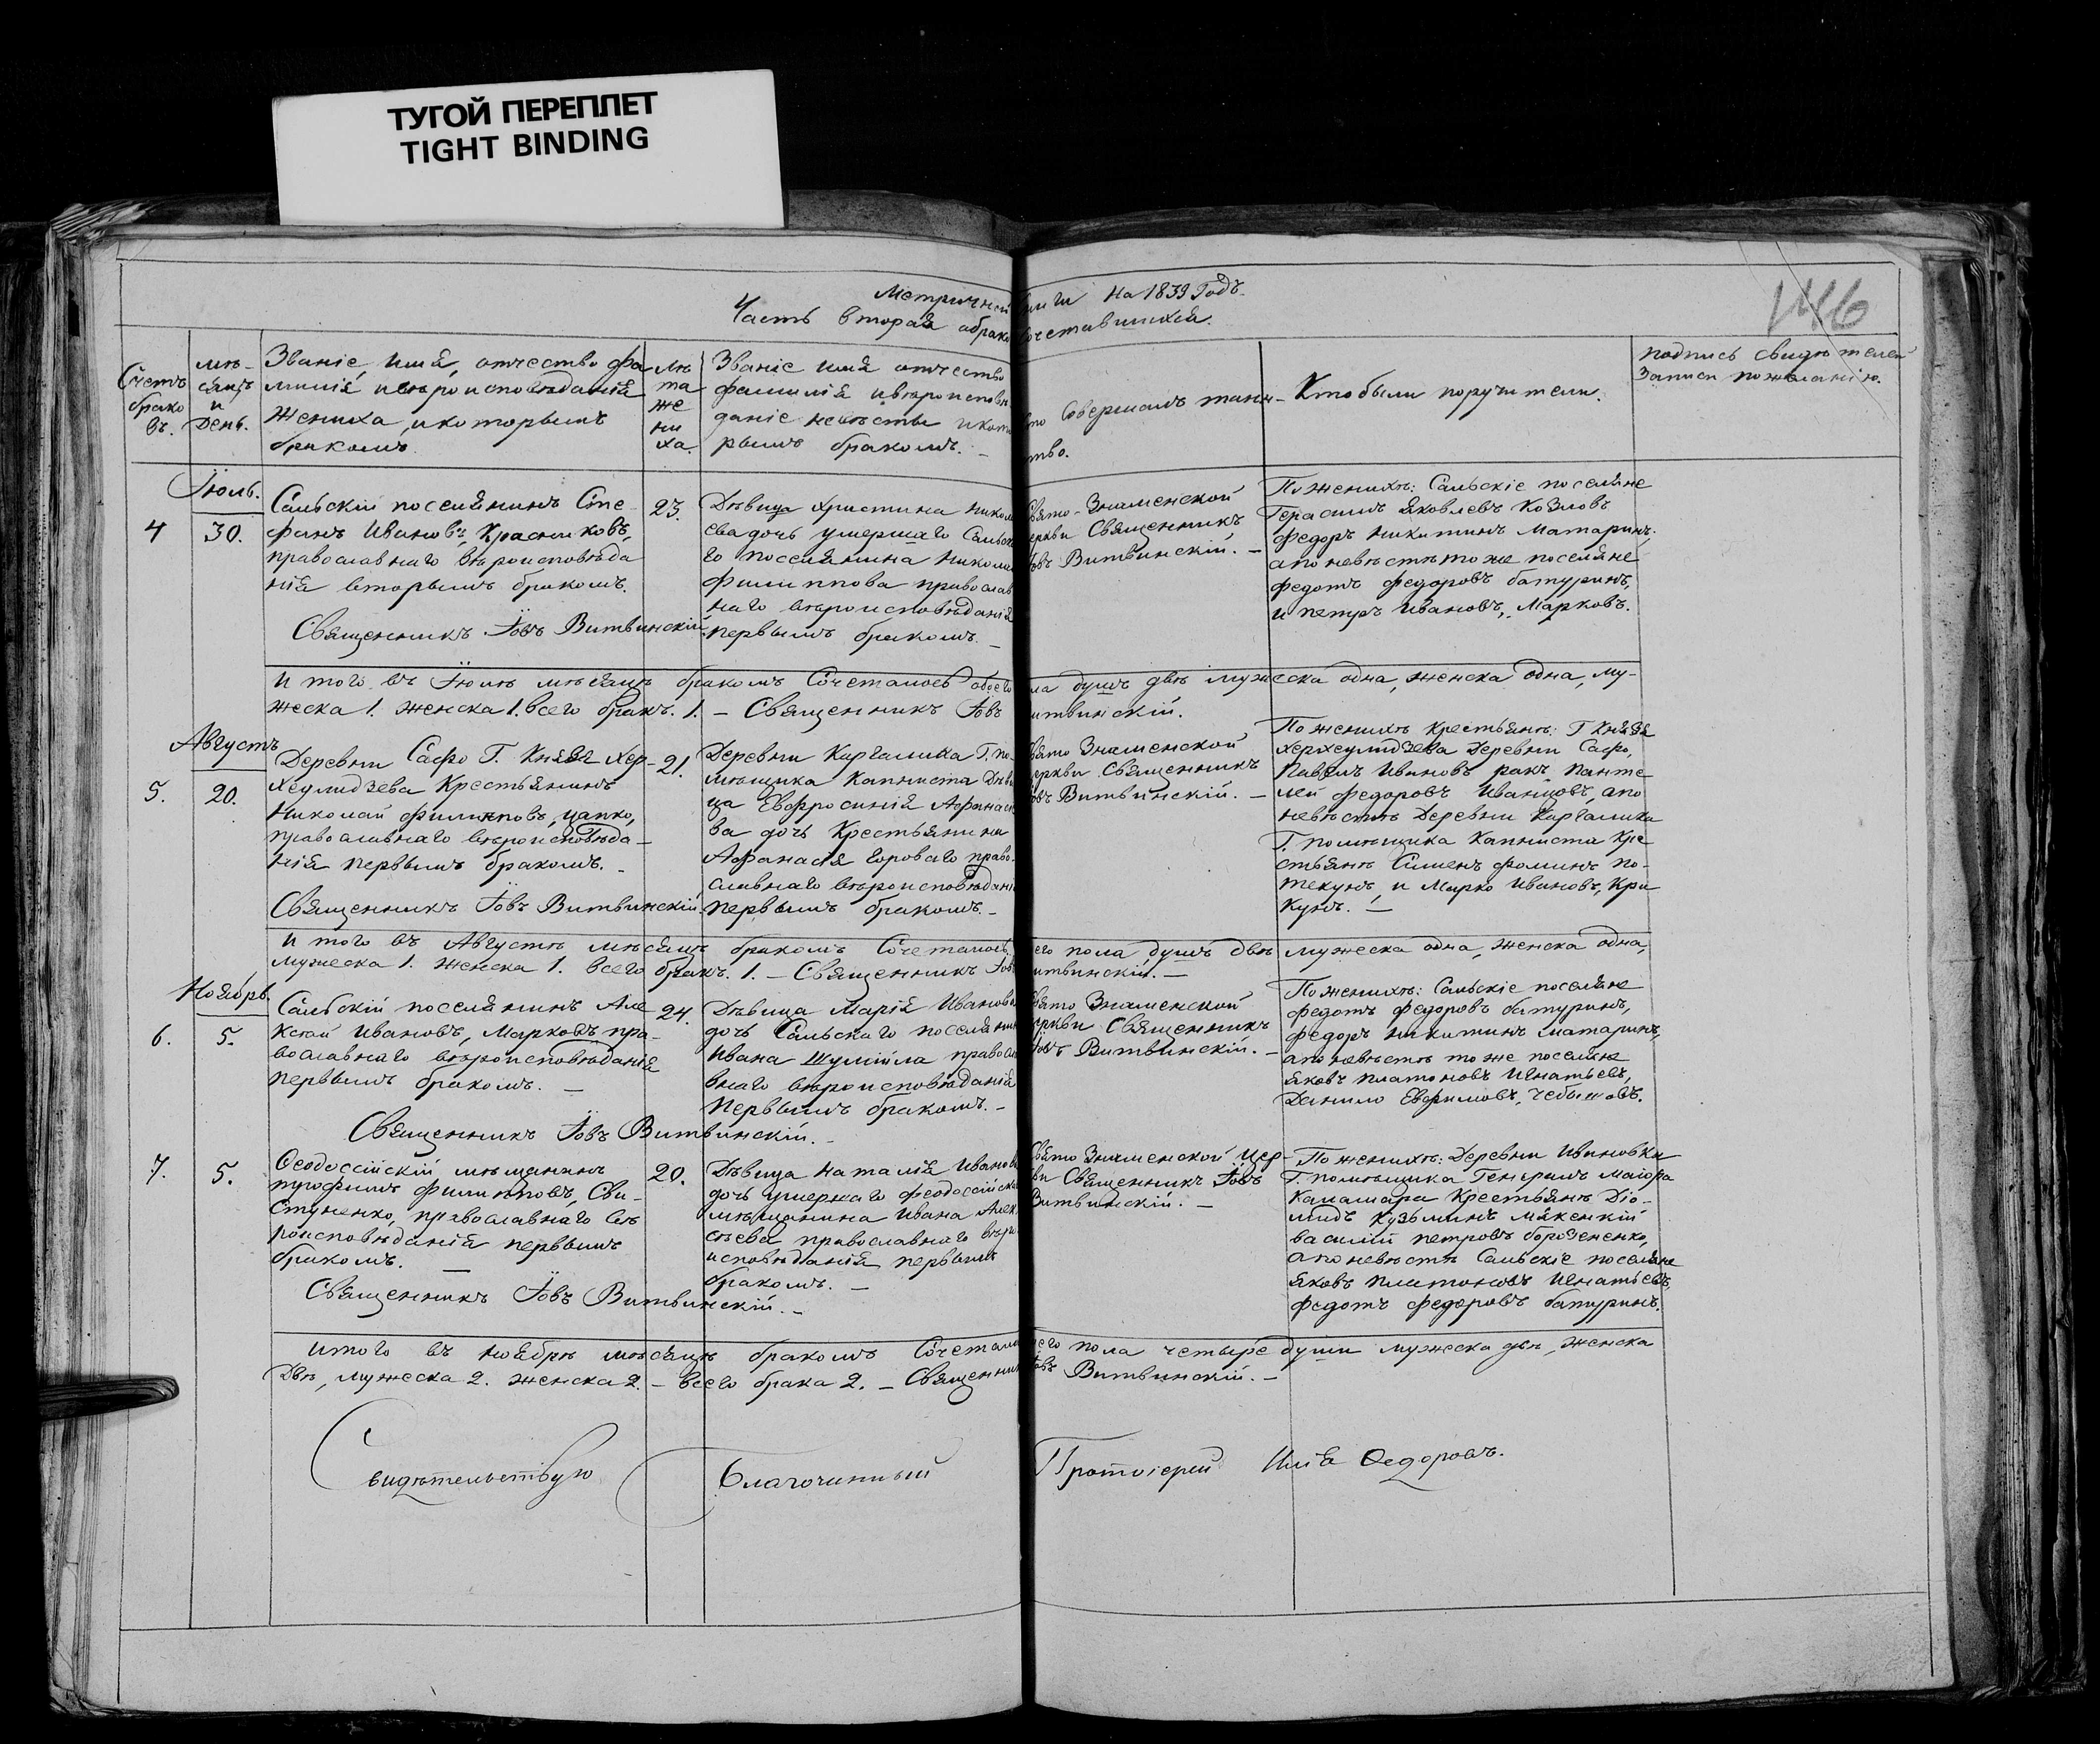 ТУГОЙ ПЕРЕПЛЕТ
TIGHT BINDING
146
Метричной книги на 1839 Годъ.
Часть вторая о бракосочетавшихся.
Счетъ
брако
въ.
мѣ-
сяцъ
и
День.
Званіе, имя, отчество фа
милія и вѣроисповѣданія
жениха, и которымъ
бракомъ.
Лѣ
та
же
ни
ха.
Званіе имя отчество
фамилія и вѣроисповѣ
даніе невѣсты и кото
рымъ бракомъ.
Кто Совершалъ таин-
ство.
Кто были поручители.
подпись свидѣтелей
Записи по желанію.
Іюль.
4
30.
Сальскій поселянинъ Сте-
фанъ Ивановъ, Красниковъ,
православнаго вѣроисповѣда
нія вторымъ бракомъ.
Священникъ Іовъ Витвинскій.
23.
Дѣвица Христина Никол
ева дочь умершаго Сальск
го поселянина Никола
Филиппова православ
наго вѣроисповѣданія
первымъ бракомъ. -
Свято-Знаменской
церкви Священникъ
Іовъ Витвинскій. -
По женихѣ: Сальскіе поселяне
Герасимъ Яковлевъ Козловъ
Федоръ Никитинъ Матаринъ,
а по невѣстѣ тоже поселяне
Федотъ Федоровъ Батуринъ,
и Петръ Ивановъ, Марковъ.
Итого въ Іюлѣ мѣсяцѣ бракомъ Сочеталось обоего пола душъ двѣ мужеска одна, женска одна, му-
жеска 1. женска 1. всего бракъ. 1. - Священникъ Іовъ Витвинскій.
Августъ
5.
20.
Деревни Сафо Г. Князя Хер-
хеулидзева Крестьянинъ
Николай Филиповъ, Цапко,
православнаго вѣроисповѣда-
нія первымъ бракомъ. -
Священникъ Іовъ Витвинскій.
21.
Деревни Каргалика Г. по-
мѣщика Капниста Дѣви
ца Евфросинія Афанась
ва дочь Крестьянина
Афанасія Короваго право-
славнаго вѣроисповѣдані
первымъ бракомъ. -
Свято Знаменской
церкви Священникъ
Іовъ Витвинскій. -
По женихѣ Крестьянѣ: Г Князя
Херхеулидзева Деревни Сафо,
Павелъ Ивановъ ракъ, Панте
лей Федоровъ Иванцовъ, а по
невѣстѣ Деревни Каргалика
Г. помѣщика Капниста Кре
стьянѣ Сименъ Фоминъ По-
текунъ, и Марко Ивановъ, Кри
кунъ. -
Итого въ Августѣ мѣсяцѣ бракомъ Сочеталось обоего пола, душъ двѣ мужеска одна, женска одна,
мужеска 1. женска 1. всего бракъ. 1. - Священникъ Іовъ Витвинскій. -
Ноябрь.
6.
5.
Сальскій поселянинъ Але
ксѣй Ивановъ, Марковъ, пра-
вославнаго вѣроисповѣданія
первымъ бракомъ. -
Священникъ Іовъ Витвинскій. -
24.
Дѣвица Марія Иванова
дочь Сальскаго поселянин
Ивана Шумійла правосла
внаго вѣроисповѣданія
первымъ бракомъ. -
Свято Знаменской
церкви Священникъ
Іовъ Витвинскій. -
По женихѣ: Сальскіе поселяне
Федотъ Федоровъ Батуринъ,
Федоръ Никитинъ Матаринъ,
а по невѣстѣ тоже поселяне
Яковъ Платоновъ Игнатьевъ,
Данило Евфимовъ, Чебышовъ.
7.
5.
Ѳеодосійскій мѣщанинъ
Трофимъ Филипповъ, Сви-
стуненко, православнаго вѣ
роисповѣданія первымъ
бракомъ. -
Священникъ Іовъ Витвинскій. -
20.
Дѣвица Наталія Иванова
дочь умершаго Феодосійска
мѣщанина Ивана Алек
сѣева православнаго вѣро
исповѣданія первымъ
бракомъ. -
Свято Знаменской Цер-
кви Священникъ Іовъ
Витвинскій. -
По женихѣ: Деревни Ивановки
Г. помѣщика Генералъ Маіора
Каламара Крестьянѣ Діо-
мидъ Кузьминъ
Василій Петровъ Бородененко,
а по невѣстѣ Сальскіе поселяне
Яковъ Платоновъ Игнатьевъ,
Федотъ Федоровъ Батуринъ.
Итого въ Ноябрѣ мѣсяцѣ бракомъ Сочеталось обоего пола четыре души мужеска двѣ, женска
Двѣ, мужеска 2. женска 2. - всего брака 2. - Священникъ Іовъ Витвинскій. -
Свидѣтельствую Благочинный Протоіерей Илія Ѳедоровъ.